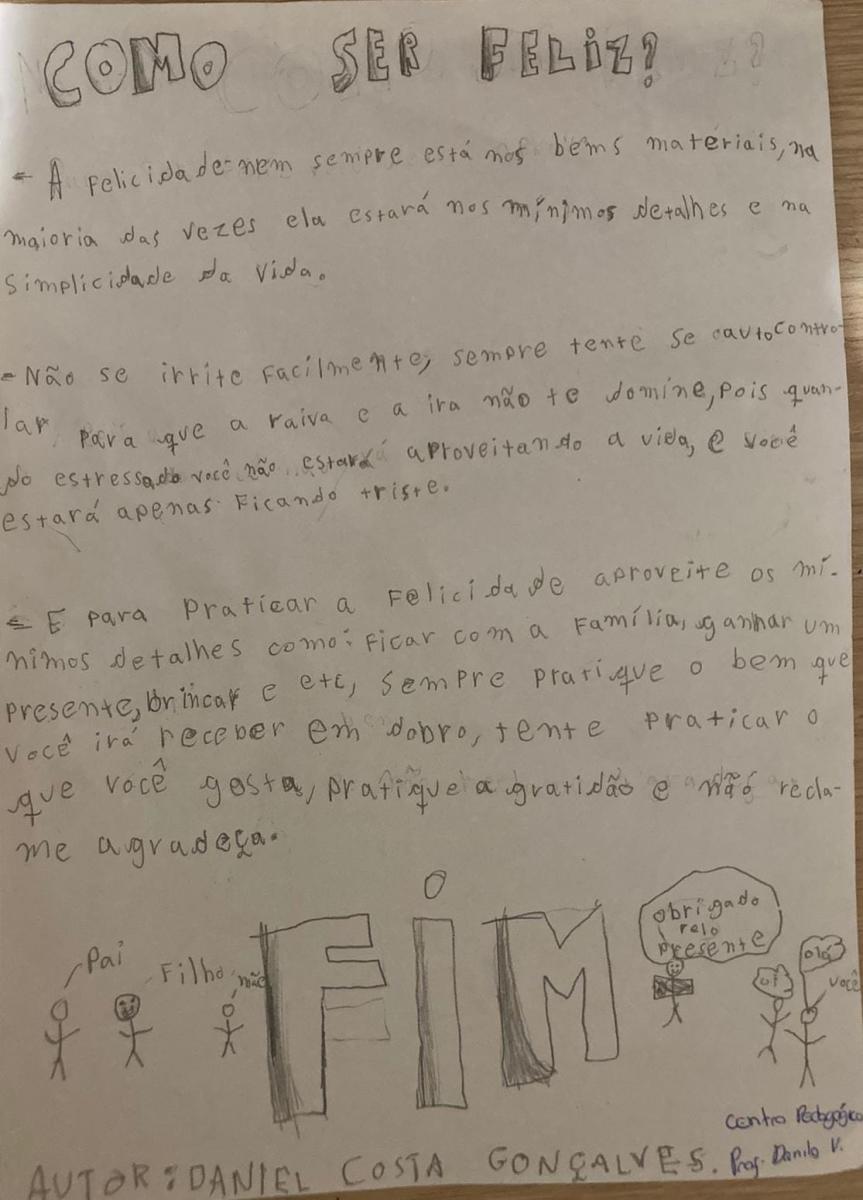 COMO SER FELIZ?
- A Felicidade nem sempre está nos bems materiais, na
maioria das vezes ela estará nos mínimos detalhes e na
simplicidade da vida.
- Não se irrite Facilmente, sempre tente se autocontro-
lar para que a raiva e a ira não te domine, pois quan-
do estressado você não estará aproveitando a vida, e você
estará apenas Ficando triste.
- E para praticar a Felicidade aproveite os mí-
nimos detalhes como: Ficar com a Família, ganhar um
presente, brincar e etc, sempre pratique o bem que
você irá receber em dobro, tente praticar o
que você gosta, pratique a gratidão e não recla-
me agradeça.
FIM
Pai
Filho
mãe
obrigado
pelo
presente
oi
olá
você
Centro Pedagógico
Prof. Danilo V.
AUTOR: DANIEL COSTA GONÇALVES.